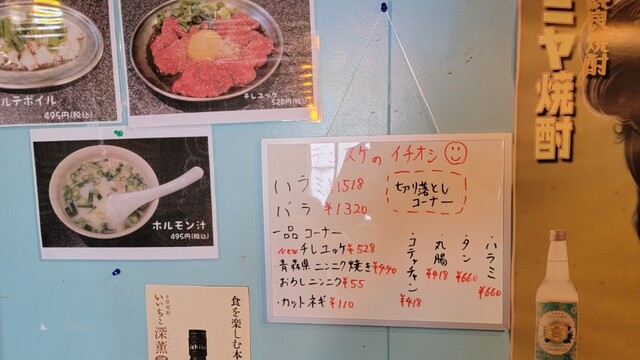 ルテボイル
495円(税込)
チレユッケ
528円(税込)
ホルモン汁
495円(税込)
スケのイチオシ
ハラミ ¥1518
バラ ¥1320
切り落とし
コーナー
一品コーナー
NEWチレユッケ¥528
・青森県ニンニク焼き¥440
・おろしニンニク¥55
・カットネギ¥110
・ハラミ ¥660
・タン ¥660
・丸腸 ¥418
・コテッチャン ¥418
いいちこ深薫
食を楽しむ本
ミヤ焼酎
焼酎